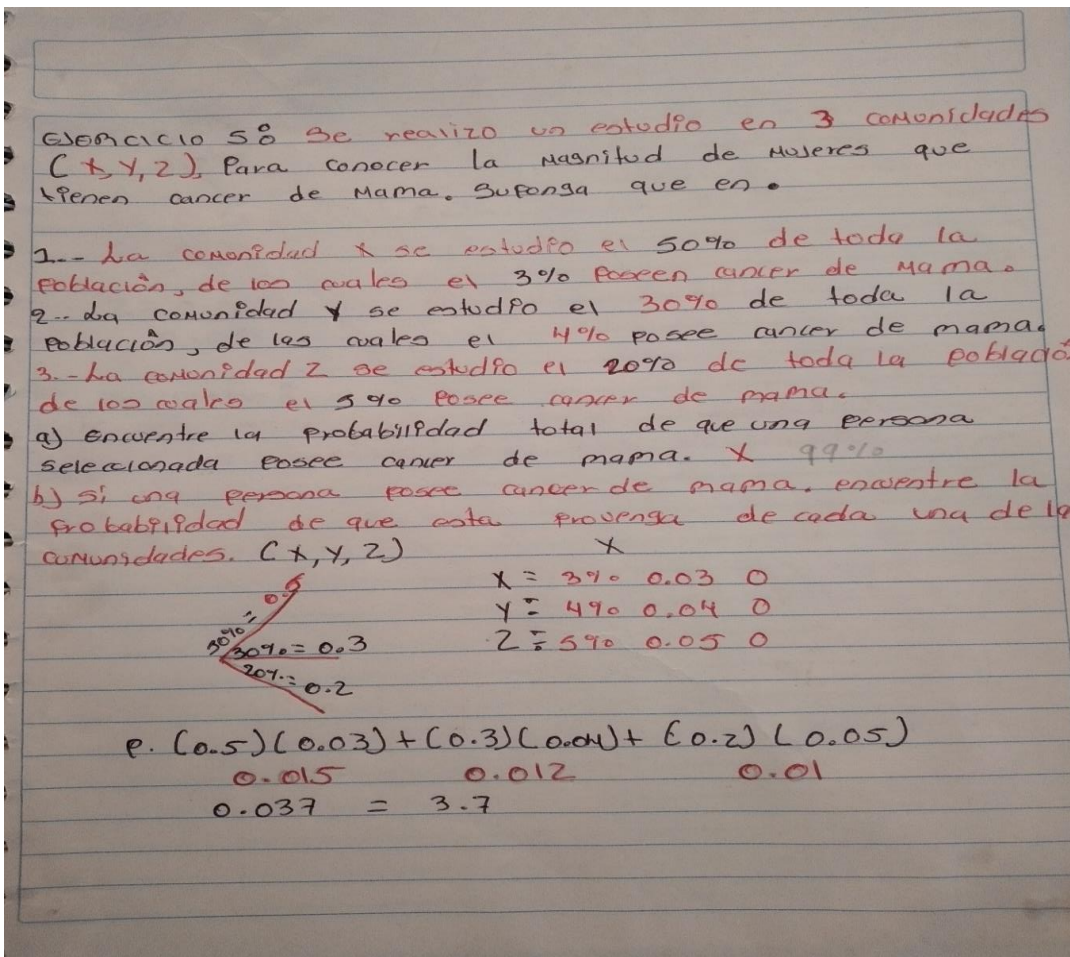 Ejercicio 5: Se realizo un estudio en 3 comunidades
(X, Y, Z), Para conocer la Magnitud de Mujeres que
tienen cancer de Mama. Suponga que en.
1.- La comunidad X se estudio el 50% de toda la
Población, de los cuales el 3% Poseen cancer de Mama.
2.. La comunidad Y se estudio el 30% de toda la
Población, de las cuales el 4% posee cancer de mama.
3.- La comunidad Z se estudio el 20% de toda la Població
de los cuales el 5% Posee cancer de mama.
a) encuentre la probabilidad total de que una persona
seleccionada Posee cancer de mama. X 99%
b) si una persona posee cancer de mama. encuentre la
Probabilidad de que esta Provenga de cada una de la
comunidades. (X, Y, Z) X
X = 3% 0.03 0
Y = 4% 0.04 0
Z = 5% 0.05 0
50% = 0.5
30% = 0.3
20% = 0.2
P. (0.5)(0.03)+(0.3)(0.04)+(0.2)(0.05)
0.015 0.012 0.01
0.037 = 3.7